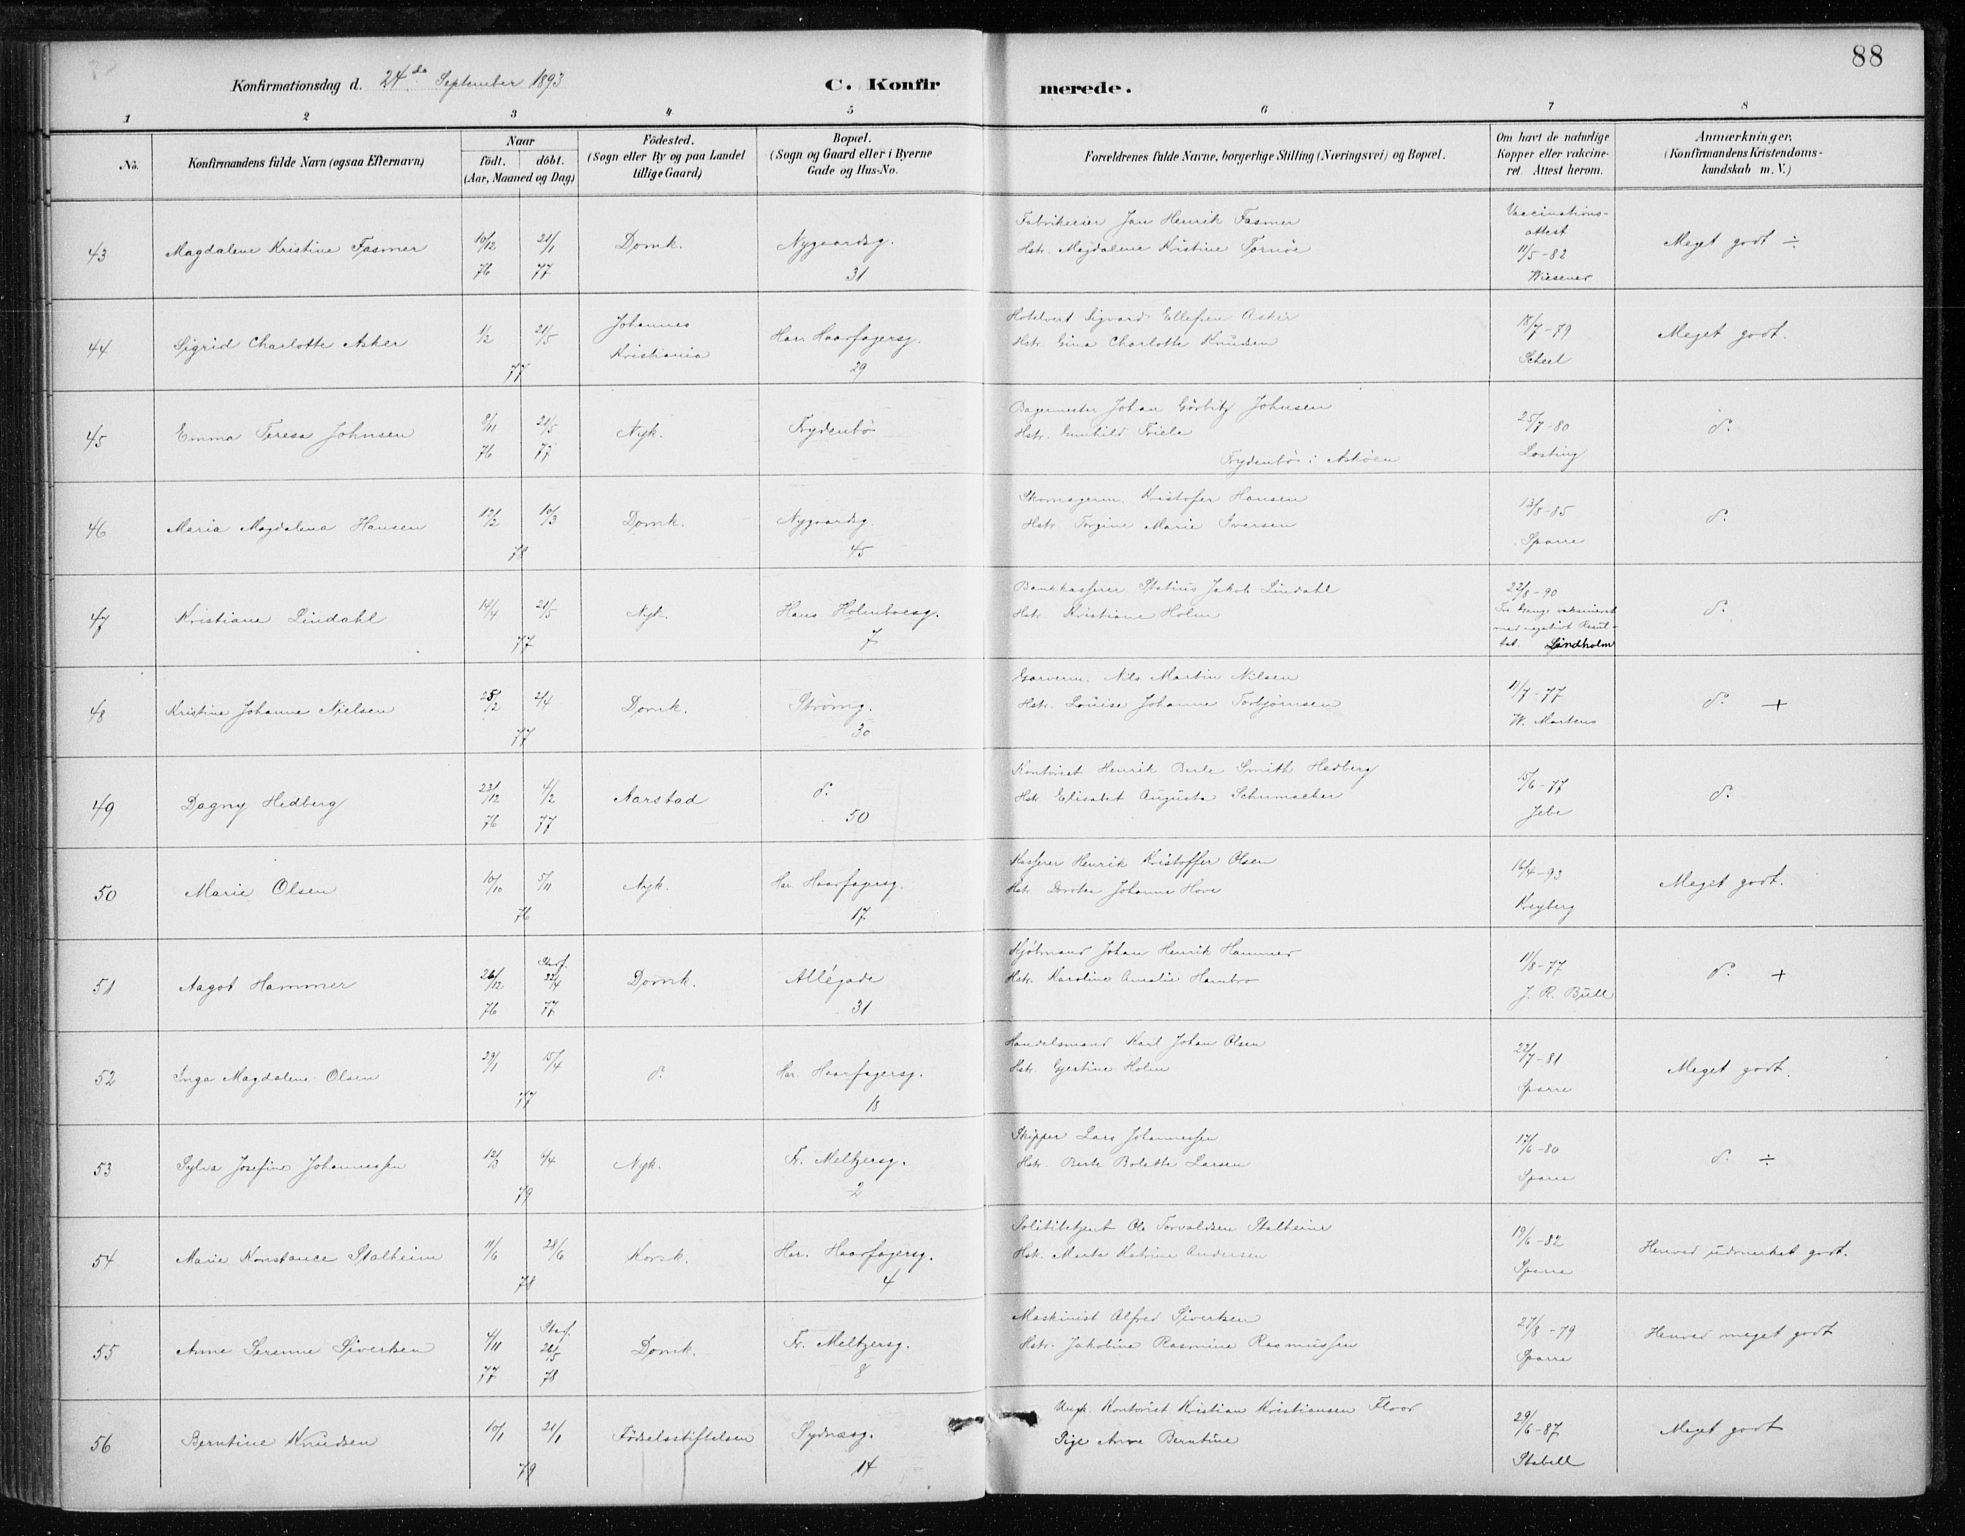 88
Konfirmationsdag d. 24de September 1893
C. Konfirmerede.
1 2 3 4 5 6 7 8
No.
Konfirmandens fulde Navn (ogsaa Efternavn)
Naar
födt. döbt.
(Aar, Maaned og Dag)
Födested.
(Sogn eller By og paa Landet
tillige Gaard)
Bopæl.
(Sogn og Gaard eller i Byerne
Gade og Hus-No.
Forældrenes fulde Navne, borgerlige Stilling (Næringsvei) og Bopæl.
Om havt de naturlige
Kopper eller vakcine-
ret. Attest herom.
Anmærkninger.
(Konfirmandens Kristendoms-
kundskab m. V.)
43 Magdalene Kristine Fasmer 10/12 76 21/1 77 Domk. Nygaardsg. 31
Fabrikeier Jan Henrik Fasmer
Hstr. Magdalene Kristine Tornöe
Vaccinations-
attest
11/5-82
Wiesener
Meget godt ÷
44 Sigrid Charlotte Asker 1/2 21/5 77 Johannes Kristiania Har. Haarfagersg. 29
Hotelvert Sigvard Ellefsen Asker
Hstr. Gina Charlotte Knudsen
18/7-79
Scheel
Meget godt.
45 Emma Teresa Johnsen 9/11 76 21/5 77 Nyk. Frydenbö
Bagermester Johan Görbitz Johnsen
Hstr. Gunhild Friele
Frydenbö i Asköen
25/7-80
Losting
d.
46 Maria Magdalena Hansen 12/2 10/3 78 Domk. Nygaardsg 45
Skomagerm. Kristofer Hansen
Hstr. Torgine Marie Iversen
13/8-85
Sparre
d.
47 Kristiane Lindahl 14/4 21/5 77 Nyk. Hans Holmboesg. 7
Bankkasserer Statius Jakob Lindahl
Hstr. Kristiane Holm
22/8-90
Tre Gange vaksineret
med negativt Resul-
tat. Lindholm
d.
48 Kristine Johanne Nielsen 25/2 2/4 77 Domk. Strömg. 30
Garverm. Nils Martin Nilsen
Hstr. Louise Johanne Torbjörnsen
11/7-77
W. Martens
d. +
49 Dagny Hedberg 23/12 76 4/2 77 Aarstad d. 50
Kontorist Henrik Berle Smith Hedberg
Hstr. Elisabet Augusta Schumacher
15/6-77
Jebe
d.
50 Marie Olsen 10/10 5/11 76 Nyk. Har. Haarfagersg. 17
Kasserer Henrik Kristoffer Olsen
Hstr. Dorotea Johanne Hove
16/4-93
Kreyberg
Meget godt.
51 Aagot Hammer 26/12 76 Staf. 22/4 77 Domk. Allégade 31
Kjöbmand Johan Henrik Hammer
Hstr. Karoline Amalie Hambro
11/8-77
J. R. Bull
d. +
52 Inga Magdalene Olsen 29/1 15/4 77 d. Har. Haarfagersg. 18
Handelsmand Karl Johan Olsen
Hstr. Gjertine Holm
22/7-81
Sparre
Meget godt.
53 Sylva Josefine Johannessen 12/3 6/4 79 Nyk. Fr. Meltzersg. 2
Skipper Lars Johannessen
Hstr. Berte Bolette Larsen
17/6-80
Sparre
d. ÷
54 Marie Konstance Stalheim 11/6 28/6 78 Korsk. Har. Haarfagersg. 4
Politibetjent Ole Torvaldsen Stalheim
Hstr. Marta Katrine Andersen
19/6-82
Sparre
Henved udmerket godt.
55 Anne Serenne Sivertsen 4/11 77 Staf. 26/5 78 Domk. Fr. Meltzersg. 8
Maskinist Alfred Sivertsen
Hstr. Jakobine Rasmine Rasmussen
27/8-79
Sparre
Henved meget godt
56 Berntine Knudsen 10/1 21/1 79 Födselsstiftelsen Sydnæsg. 14
Ungk. Kontorist Kristian Kristiansen Floor
Pige Anne Berntine
29/6-87
Stabell
Meget godt